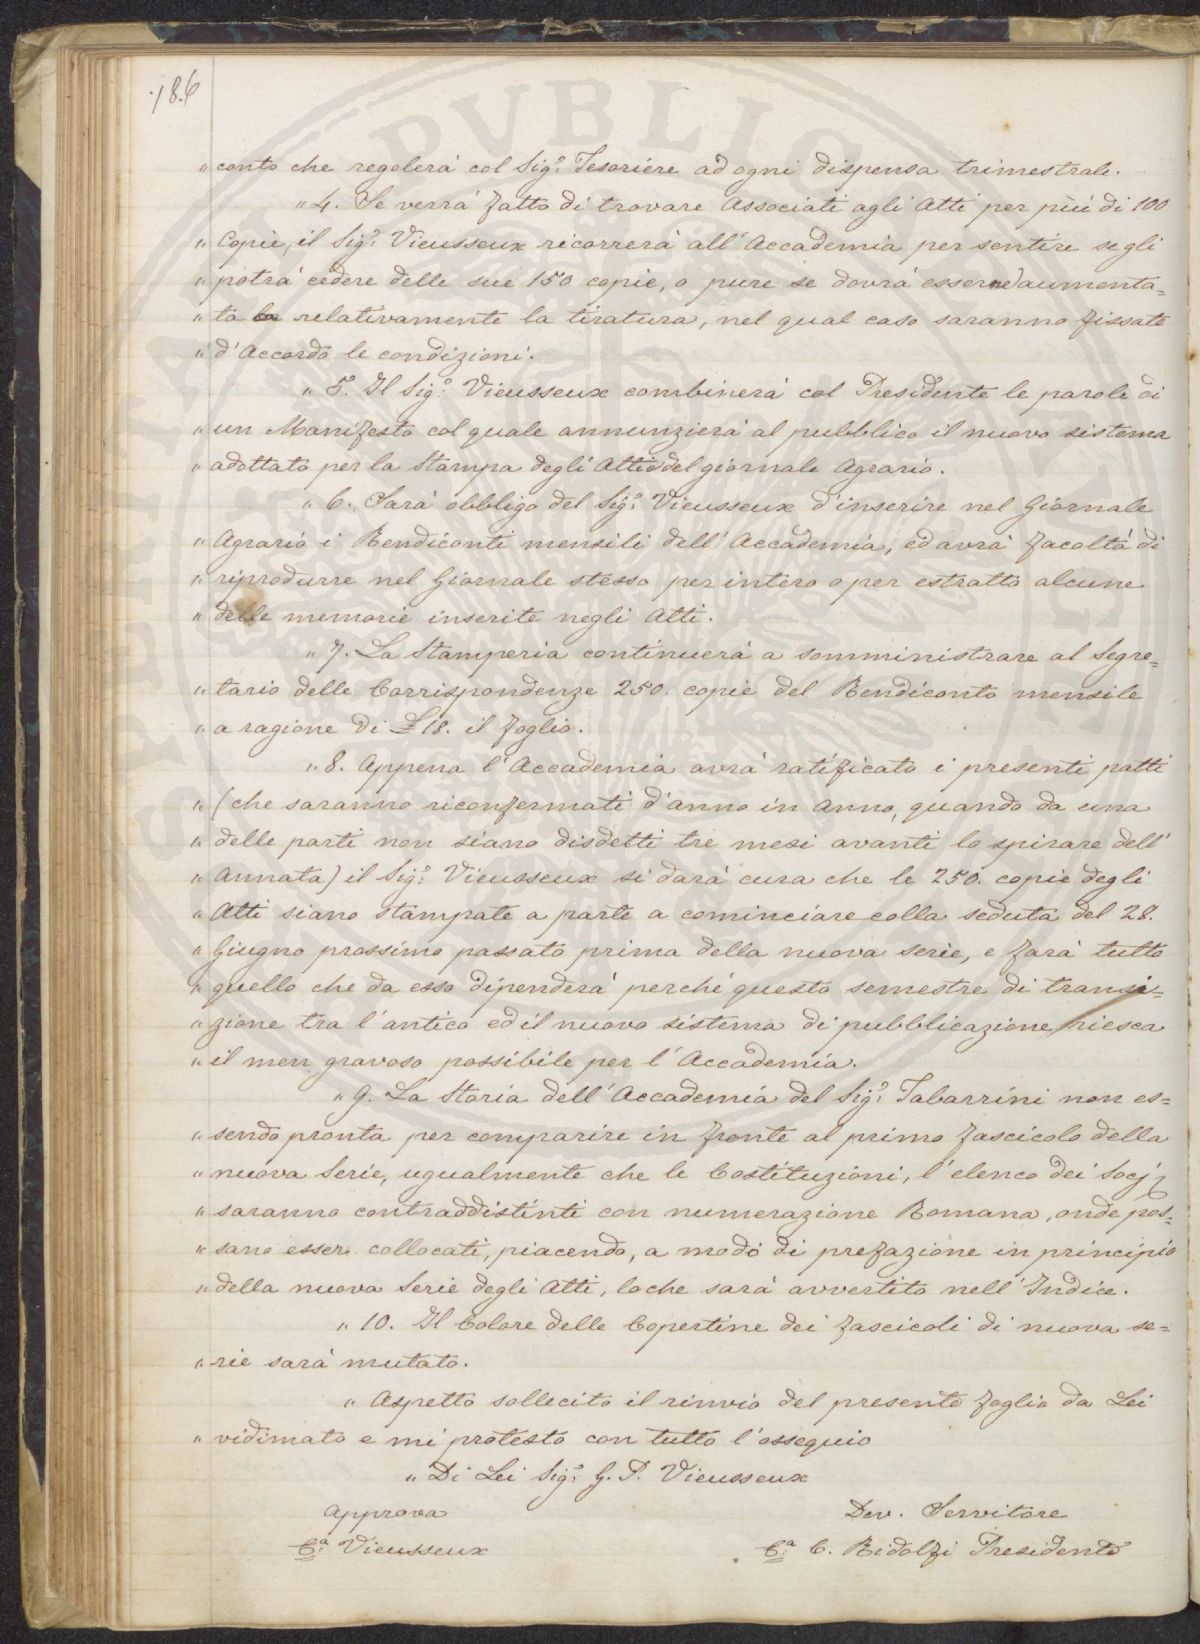 186
PVBLIC
" conto che regolerà col Sig.r Tesoriere ad ogni dispensa trimestrale.
" 4. Se verrà fatto di trovare Associati agli Atti per più di 100
" Copie, il Sig.r Vieusseux ricorrerà all'Accademia per sentire se gli
" potrà cedere delle sue 150 copie, o pure se dovrà esserne aumenta=
" ta relativamente la tiratura, nel qual caso saranno fissate
" d'Accordo le condizioni.
" 5. Il Sig.r Vieusseux combinerà col Presidente le parole di
" un Manifesto col quale annunzierà al pubblico il nuovo sistema
" adottato per la Stampa degli Atti e del giornale Agrario.
" 6. Sarà obbligo del Sig.r Vieusseux d'inserire nel Giornale
" Agrario i Rendiconti mensili dell'Accademia, ed avrà facoltà di
" riprodurre nel Giornale stesso per intero o per estratto alcune
" delle memorie inserite negli Atti.
" 7. La Stamperia continuerà a somministrare al Segre=
" tario delle Corrispondenze 250. copie del Rendiconto mensile
" a ragione di £ 18. il foglio.
" 8. Appena l'Accademia avrà ratificato i presenti patti
" (che saranno riconfermati d'anno in anno, quando da una
" delle parti non siano disdetti tre mesi avanti lo spirare dell'
" Annata) il Sig.r Vieusseux si darà cura che le 250. copie degli
" Atti siano stampate a parte a cominciare colla seduta del 28.
" Giugno prossimo passato prima della nuova serie, e farà tutto
" quello che da esso dipenderà perchè questo semestre di transi=
" zione tra l'antico ed il nuovo sistema di pubblicazione riesca
" il men gravoso possibile per l'Accademia.
" 9. La Storia dell'Accademia del Sig.r Tabarrini non es=
" sendo pronta per comparire in fronte al primo fascicolo della
" nuova Serie, ugualmente che le Costituzioni, l'elenco dei Socj,
" saranno contraddistinti con numerazione Romana, onde pos=
" sano esser collocati, piacendo, a modo di prefazione in principio
" della nuova Serie degli Atti, loche sarà avvertito nell'Indice.
" 10. Il Colore delle Copertine dei fascicoli di nuova se=
" rie sarà mutato.
" Aspetto sollecito il rinvio del presente foglio da Lei
" vidimato e mi protesto con tutto l'ossequio
" Di Lei Sig.r G. P. Vieusseux
Approva Dev. Servitore
C.a Vieusseux C.a C. Ridolfi Presidente